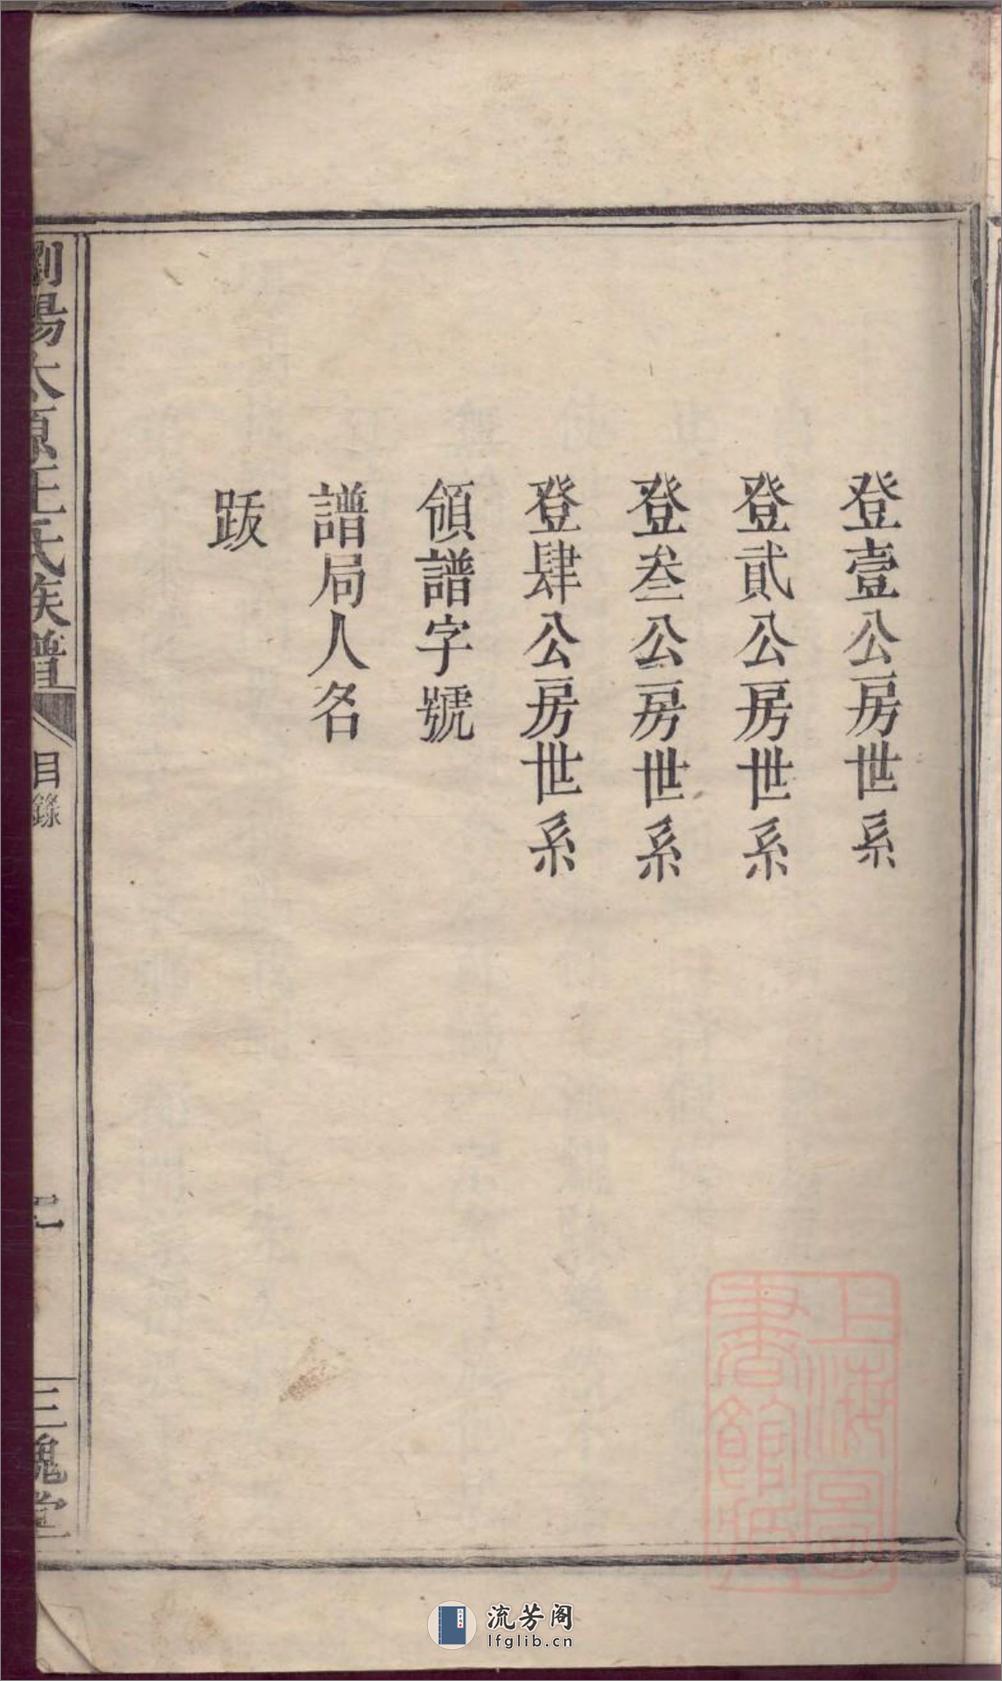 登壹公房世系
登貳公房世系
登叁公房世系
登肆公房世系
領譜字號
譜局人名
跋
瀏陽太原王氏族譜
目錄
三槐堂
上海圖
書館藏
流芳阁
lfglib.cn